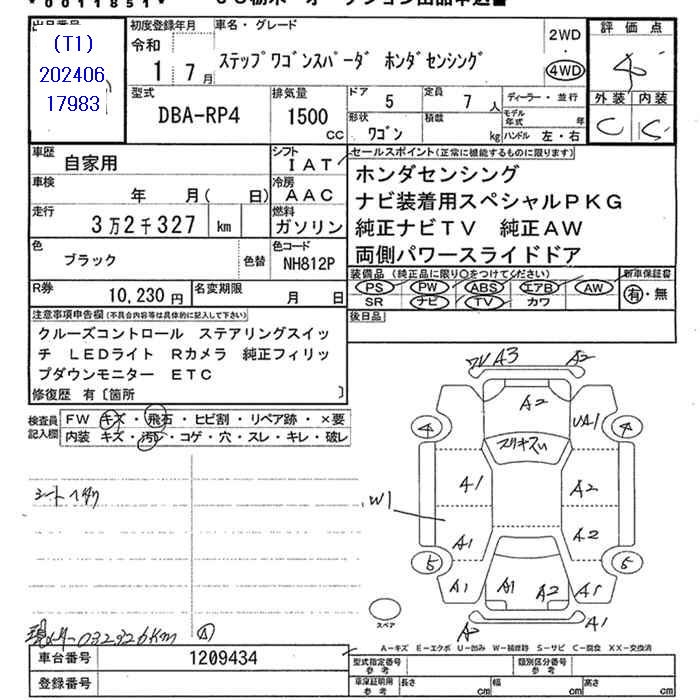 *0011851*
出品番号
(T1)
202406
17983
初度登録年月
令和
1 7月
車名・グレード
ステップワゴンスパーダ ホンダセンシング
2WD
4WD
評価点
4
外装 内装
C C
型式
DBA-RP4
排気量
1500
CC
ドア 5
定員 7人
ディーラー・並行
形状 ワゴン
積載 kg
モデル年式 年
ハンドル 左・右
車歴 自家用
シフト IAT
車検 年 月( 日)
冷房 AAC
走行 3万2千327 km
燃料 ガソリン
色 ブラック
色替
色コード NH812P
R券 10,230円
名変期限 月 日
セールスポイント(正常に機能するものに限ります)
ホンダセンシング
ナビ装着用スペシャルPKG
純正ナビTV 純正AW
両側パワースライドドア
装備品(純正品に限り○をつけてください)
新車保証書
PS PW ABS エアB AW
有・無
SR ナビ TV カワ
後日品
注意事項申告欄(不具合内容等は具体的に記入して下さい)
クルーズコントロール ステアリングスイッ
チ LEDライト Rカメラ 純正フィリッ
プダウンモニター ETC
修復歴 有〔箇所 〕
検査員記入欄
FW キズ・飛石・ヒビ割・リペア跡・×要
内装 キズ・汚レ・コゲ・穴・スレ・キレ・破レ
A3 A2
A2
4 UA1 4
A1 A2
W1
A1 A2
5 5
A1 A1 A2
A1
スペア
032326km
A-キズ E-エクボ U-凹み W-補修跡 S-サビ C-腐食 XX-交換済
車台番号 1209434
型式指定番号 参考
類別区分番号 参考
登録番号
車庫証明用 参考
長さ cm 幅 cm 高さ cm